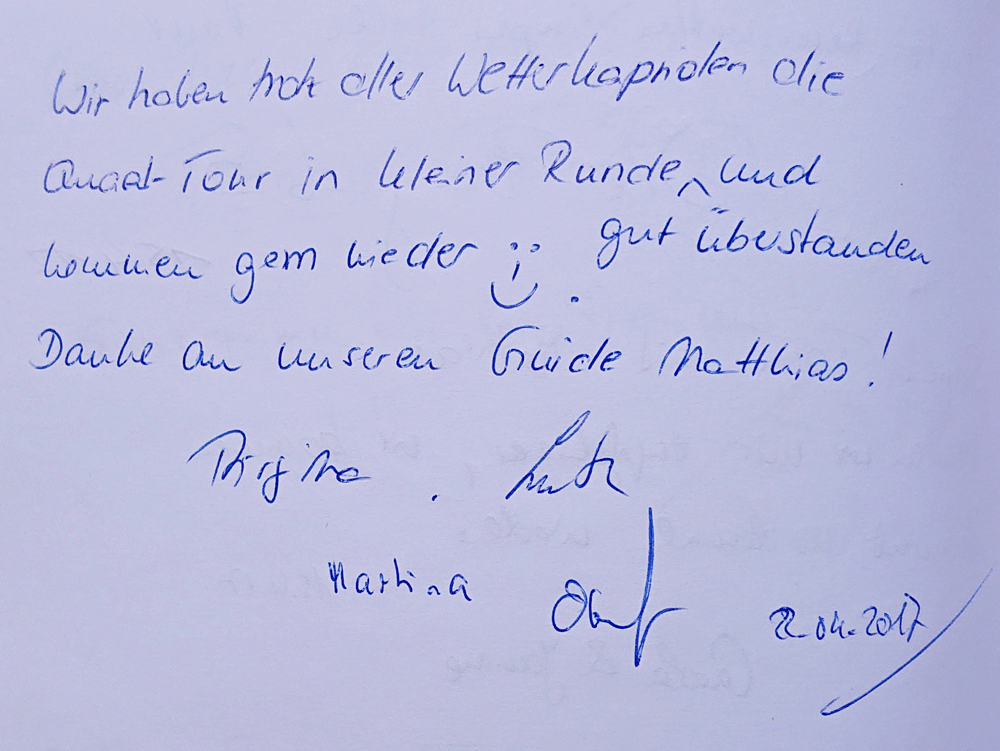 Wir haben trotz aller Wetterkapriolen die
Quad-Tour in kleiner Runde, und
gut überstanden
kommen gern wieder
Danke an unseren Guide Matthias!
Birgitta . Lutz
Martina Olaf 22.04.2017